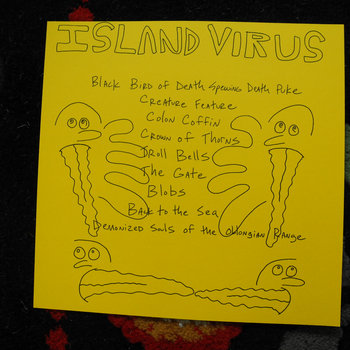 ISLAND VIRUS
Black Bird of Death Spewing Death Puke
Creature Feature
Colon Coffin
Crown of Thorns
Droll Bells
The Gate
Blobs
Back to the Sea
Demonized Souls of the Oblongian Range